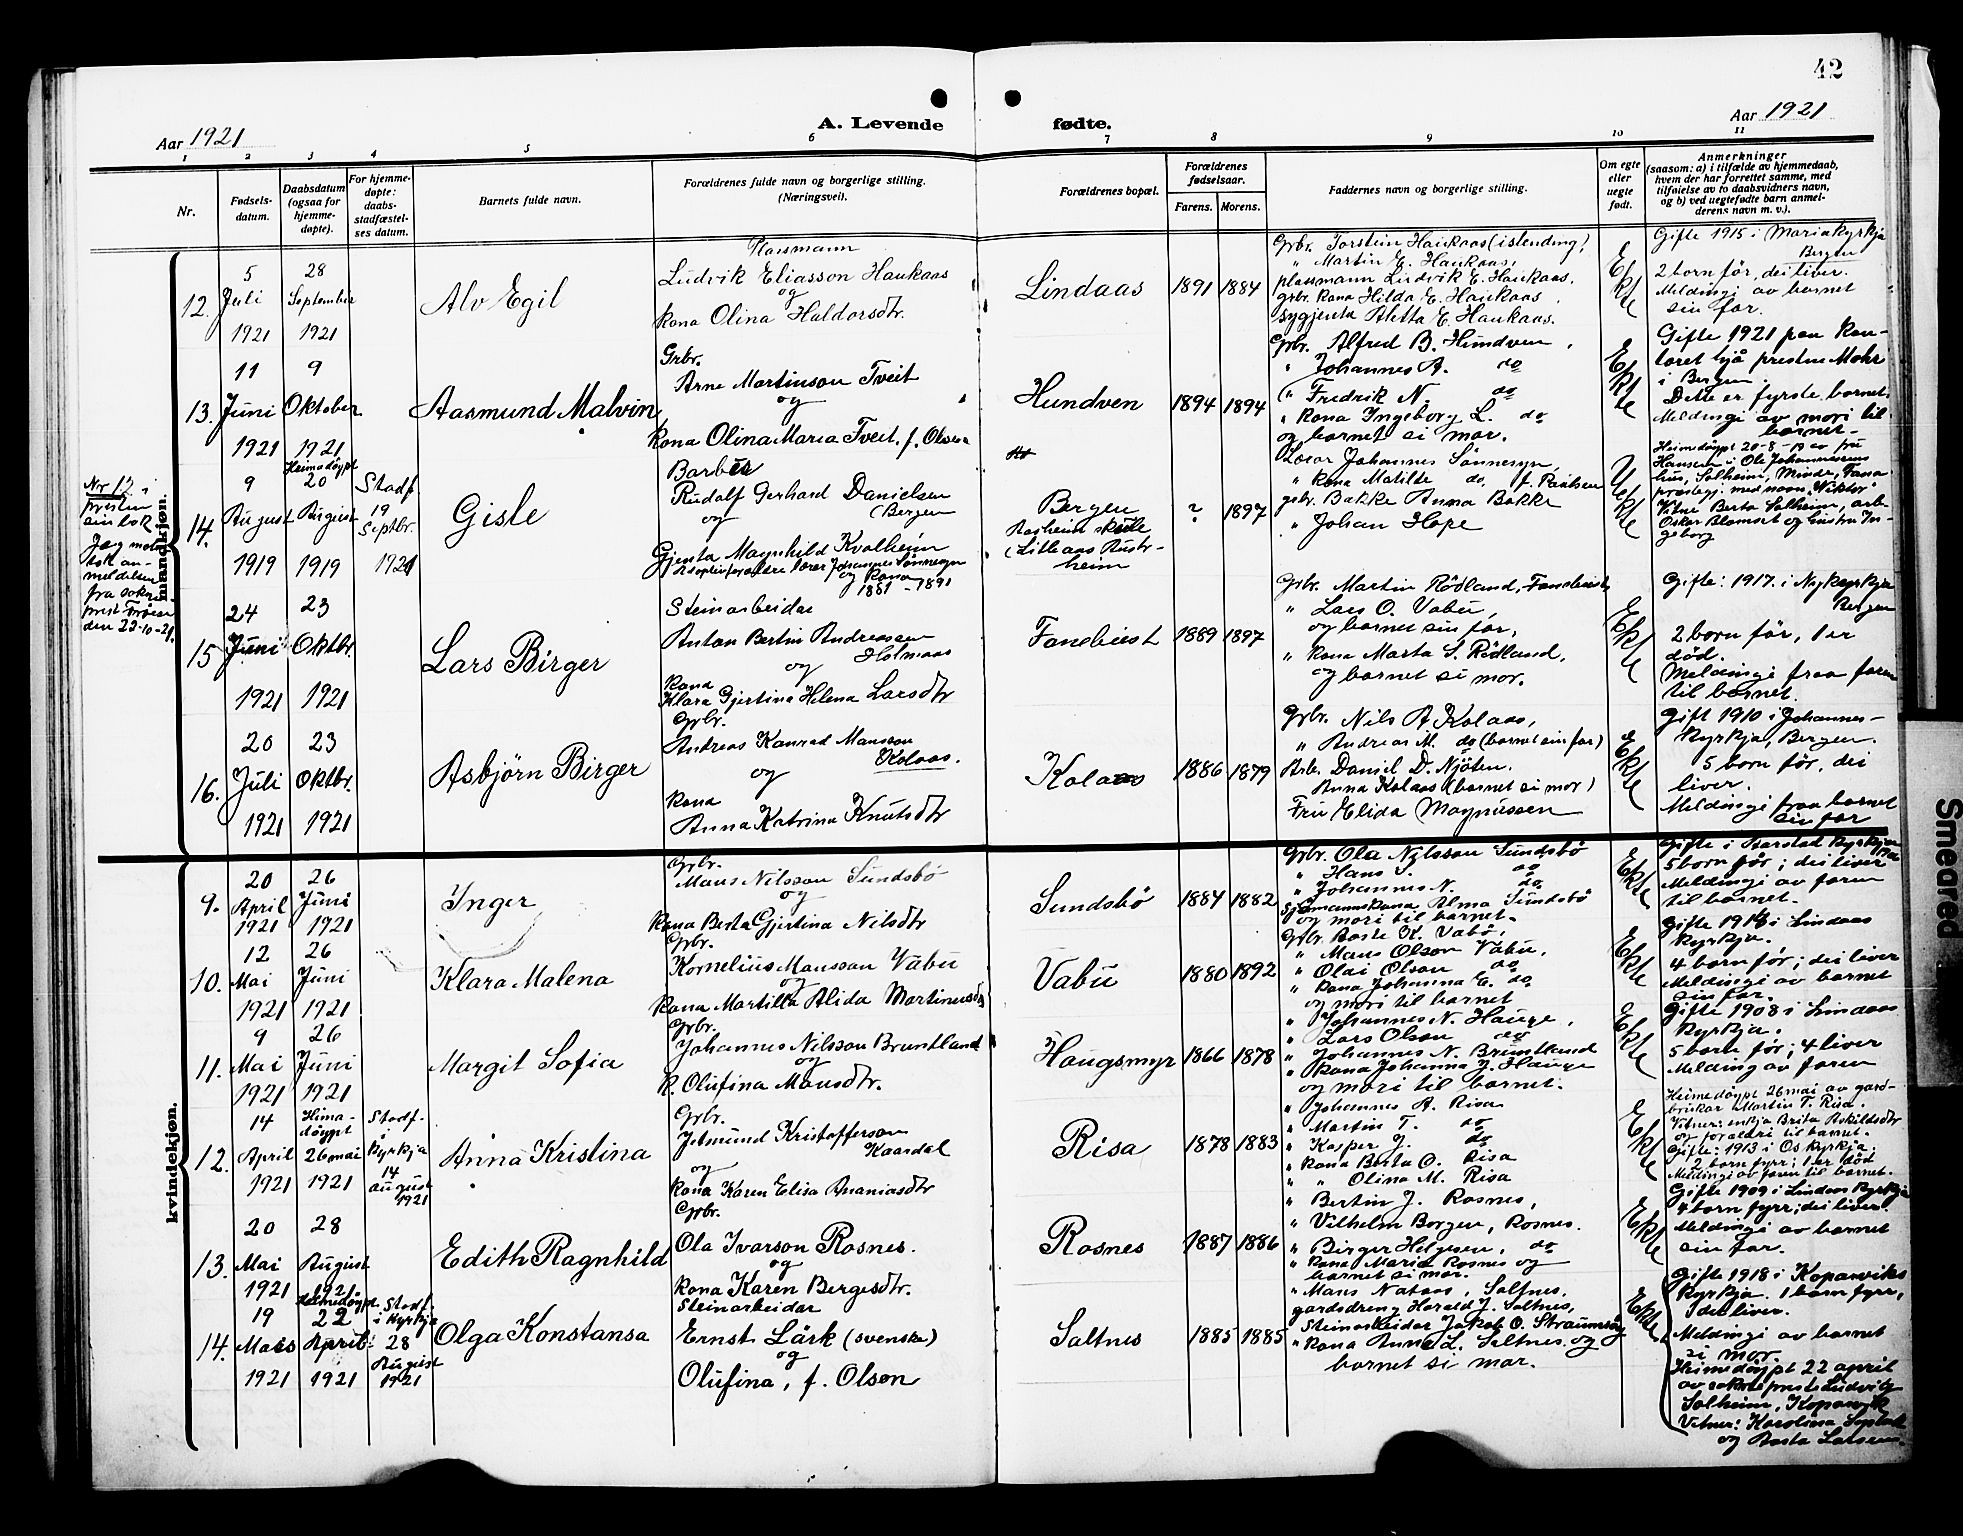 42
Aar 1921
A. Levende fødte.
Aar 1921
1 2 3 4 5 6 7 8 9 10 11
Nr.
Fødsels-
datum.
Daabsdatum
(ogsaa for
hjemme-
døpte).
For hjemme-
døpte:
daabs-
stadfæstel-
ses datum.
Barnets fulde navn.
Forældrenes fulde navn og borgerlige stilling.
(Næringsvei).
Forældrenes bopæl.
Forældrenes
fødselsaar.
Farens. Morens.
Faddernes navn og borgerlige stilling.
Om egte
eller
uegte
født.
Anmerkninger
(saasom: a) i tilfælde av hjemmedaab,
hvem der har forrettet samme, med
tilføielse av to daabsvidners navn,
og b) ved uegtefødte barn anmel-
derens navn m. v.).
mandkjøn.
12.
5
Juli
1921
28
September
1921
Alv Egil
Plassmann
Ludvik Eliasson Haukaas
og
kona Olina Haldorsdtr.
Lindaas
1891 1884
Grbr. Torstein Haukaas (islending),
" Martin E. Haukaas,
plassmann Ludvik E. Haukaas,
grbr. kona Hilda E. Haukaas,
sygjenta Aletta E. Haukaas.
Ekte
Gifte 1915 i Mariakyrkja
Bergen
2 born før, dei liver.
Meldingi av barnet
sin far.
13.
11
Juni
1921
9
Oktober
1921
Aasmund Malvin
Grbr.
Arne Martinson Tveit
og
kona Olina Maria Tveit, f. Olsen
Hundven
1894 1894
Grbr. Alfred B. Hundven,
" Johannes A. do
" Fredrik N. do
" kona Ingeborg L. do
og barnet si mor.
Ekte
Gifte 1921 paa kon-
toret hjå presten Mohr
i Bergen.
Dette er fyrste barnet.
Meldingi av mori til
barnet.
Nr 12 i
presten
sin bok
Jeg mot-
tok an-
meldelsen
fra sokne-
prest
den 22-10-21.
14.
9
August
1919
Heimedøypt
20
August
1919
Stadf.
19
Septbr.
1921
Gisle
Barber
Rudolf Gerhard Danielsen
og (Bergen
Gjenta Magnhild Kvalheim
Adoptivforeldre lærer Johannes Sønnesyn
og kona
1881 - 1891
Bergen
skule
(Litleaas Austr-
heim
? 1897
Lærar Johannes Sønnesyn,
" kona Matilde do, f. Paulsen
gbr. Bakke Anna Bakke
" Johan Hope
Uekte
Heimedøypt 20-8-19 av fru
Hansen i Ole Johannessens
hus, Solheim, Minde, Fana
prestegj. med navn "Viktor"
Vitne Berta Solheim, arb.
Oskar Blomset og hustru In-
geborg
15
24
Juni
1921
23
Oktbr.
1921
Lars Birger
Steinarbeidar
Anton Bertin Andreassen
og Holmaas
kona
Klara Gjertina Helena Larsdtr
Fanebust
1889 1897
Grbr. Martin Rødland, Fanebust,
" Lars O. Vabø,
og barnet sin far,
" kona Marta S. Rødland,
og barnet si mor.
Ekte
Gifte: 1917. i Nykyrkja
Bergen
2 born før, 1 er
død.
Meldingi fraa faren
til barnet.
16.
20
Juli
1921
23
Oktbr.
1921
Asbjörn Birger
Grbr.
Andreas Konrad Mansson
og Kolaas.
kona
Anna Katrina Knutsdtr
Kolaas
1886 1879
Grbr. Nils A. Kolaas,
" Andreas M. do (barnet sin far)
Arb. Daniel D. Njøten.
Anna Kolaas (barnet si mor)
Fru Elida Magnussen
Ekte
Gift 1910 i Johannes-
kyrkja, Bergen.
5 born før, dei
liver.
Meldingi fraa barnet
sin far
kvindekjøn.
9.
20
April
1921
26
Juni
1921
Inger
Grbr.
Mans Nilsson Sundsbö
og
kona Berta Gjertina Nilsdtr
Sundsbö
1884 1882
Grbr. Ola Nilsson Sundsbö
" Hans J. do
" Johannes N. do
Sjømannskona Alma Sundsbö
og mori til barnet.
Ekte
5 born før; dei liver
Meldingi av faren
til barnet.
10.
12
Mai
1921
26
Juni
1921
Klara Malena
Grbr.
Kornelius Mansson Vabø
og
kona Martilla Alida Martinusdtr
Vabø
1880 1892
" Mans Olson Vabø,
" Olai Olson do
" kona Johanna E. do
og mori til barnet
Ekte
Gifte 1914 i Lindaas
kyrkja.
4 born før; dei liver
Meldingi av barnet
sin far.
11.
9
Mai
1921
26
Juni
1921
Margit Sofia
Grbr.
Johannes Nilsson Bruntland
og
k. Olufina Mansdtr.
Haugsmyr
1866 1878
" Johannes N. Hauge,
" Lars Olson do
" Johannes N. Bruntland
" kona Johanna J. Hauge
og mori til barnet.
Ekte
Gifte 1908 i Lindaas
kyrkja.
5 born før; 4 liver
Melding av faren
12.
14
April
1921
Hima-
døypt
26 mai
1921
Stadf.
i
kyrkja
14
august
1921
Anna Kristina
Grbr.
Jetmund Kristofferson
og Kaardal
kona Karen Elisa Ananiasdtr
Risa
1878 1883
" Johannes A. Risa
" Martin T. do
" Kasper J. do
" kona Berta O. Risa
" " Olina M. Risa
Ekte
Heimedøypt 26 mai av gard-
brukar Martin T. Risa.
Vitner: enkja Brita Askildsdtr
og foreldri til barnet.
Gifte: 1913 i Os kyrkja.
2 born fyrr; 1 er død
Meldingi av faren til barnet.
13.
20
Mai
1921
28
August
1921
Edith Ragnhild
Grbr.
Ola Ivarson Rosnes.
og
kona Karen Bergesdtr.
Rosnes
1887 1886
" Bertin J. Rosnes,
" Vilhelm Borgen, Rosnes.
" Birger Helgesen, do
" kona Maria Rosnes og
barnet si mor.
Ekte
Gifte 1909 i Lindaas kyrkja
4 born fyrr; dei liver
Meldingi av barnet
sin far.
14.
19
Mars
1921
Heimedøypt
22
April
1921
Stadf.
i kyrkja
28
August
1921
Olga Konstansa
Steinarbeidar
Ernst Lärk (svenske)
og
Olufina, f. Olson
Saltnes
1885 1885
" Mans Nataas, Saltnes,
gardsdreng Harald J. Saltnes,
Steinarbeidar Jakob O. Straumsøy
" kona Anna L. Saltnes og
barnet si mor.
Ekte
Gifte 1918 i Kopervik
kyrkja. 1 born fyrr,
det liver.
Meldingi av barnet
si mor.
Heimedøypt 22 april
av sokneprest Ludvig
Solheim, Kopervik
Vitner: Karolina
og Berta Larsen.
Smeared